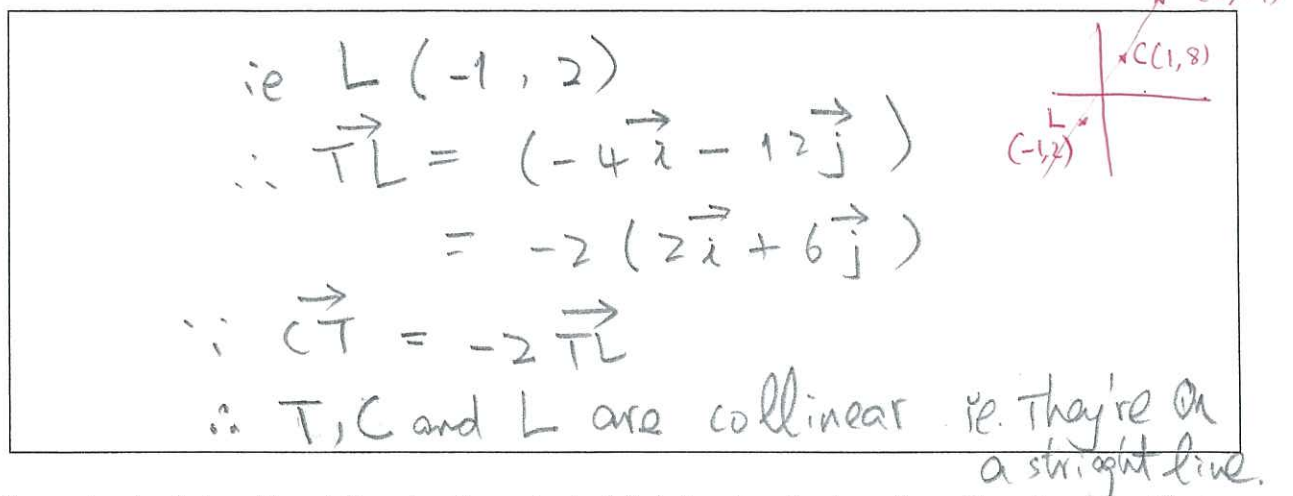 ie L (-1, 2)
∴ \overrightarrow{TL} = (-4\vec{i} - 12\vec{j})
= -2 (2\vec{i} + 6\vec{j})
∵ \overrightarrow{CT} = -2 \overrightarrow{TL}
∴ T, C and L are collinear ie. They're on
a strioght line.
C(1,8)
L
(-1,2)